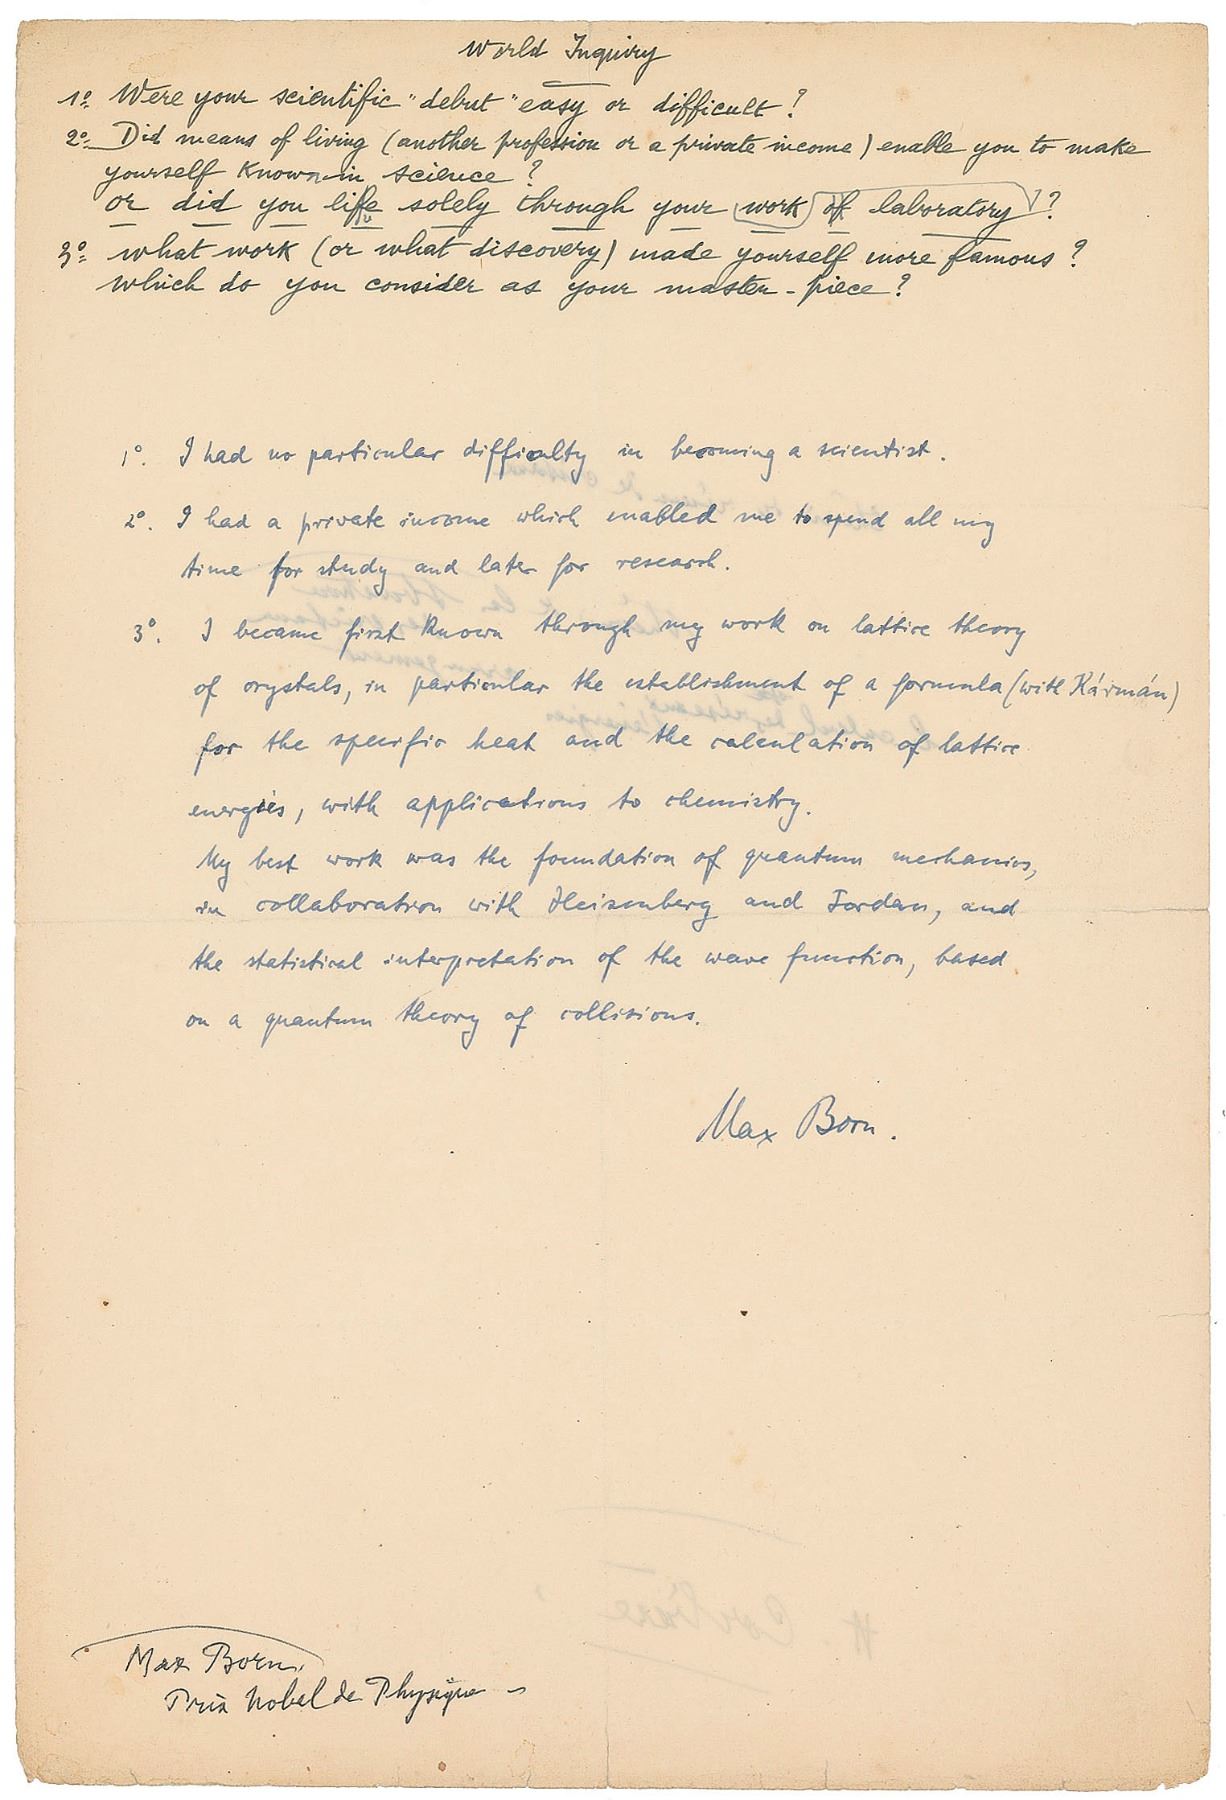 World Inquiry
1º: Were your scientific "debut" easy or difficult?
2º: Did means of living (another profession or a private income) enable you to make
yourself known in science?
or did you life solely through your work of laboratory?
3º: what work (or what discovery) made yourself more famous?
which do you consider as your master-piece?
1º. I had no particular difficulty in becoming a scientist.
2º. I had a private income which enabled me to spend all my
time for study and later for research.
3º. I became first known through my work on lattice theory
of crystals, in particular the establishment of a formula (with Kármán)
for the specific heat and the calculation of lattice
energies, with applications to chemistry.
My best work was the foundation of quantum mechanics,
in collaboration with Heisenberg and Jordan, and
the statistical interpretation of the wave function, based
on a quantum theory of collisions.
Max Born.
Max Born.
Prix Nobel de Physique